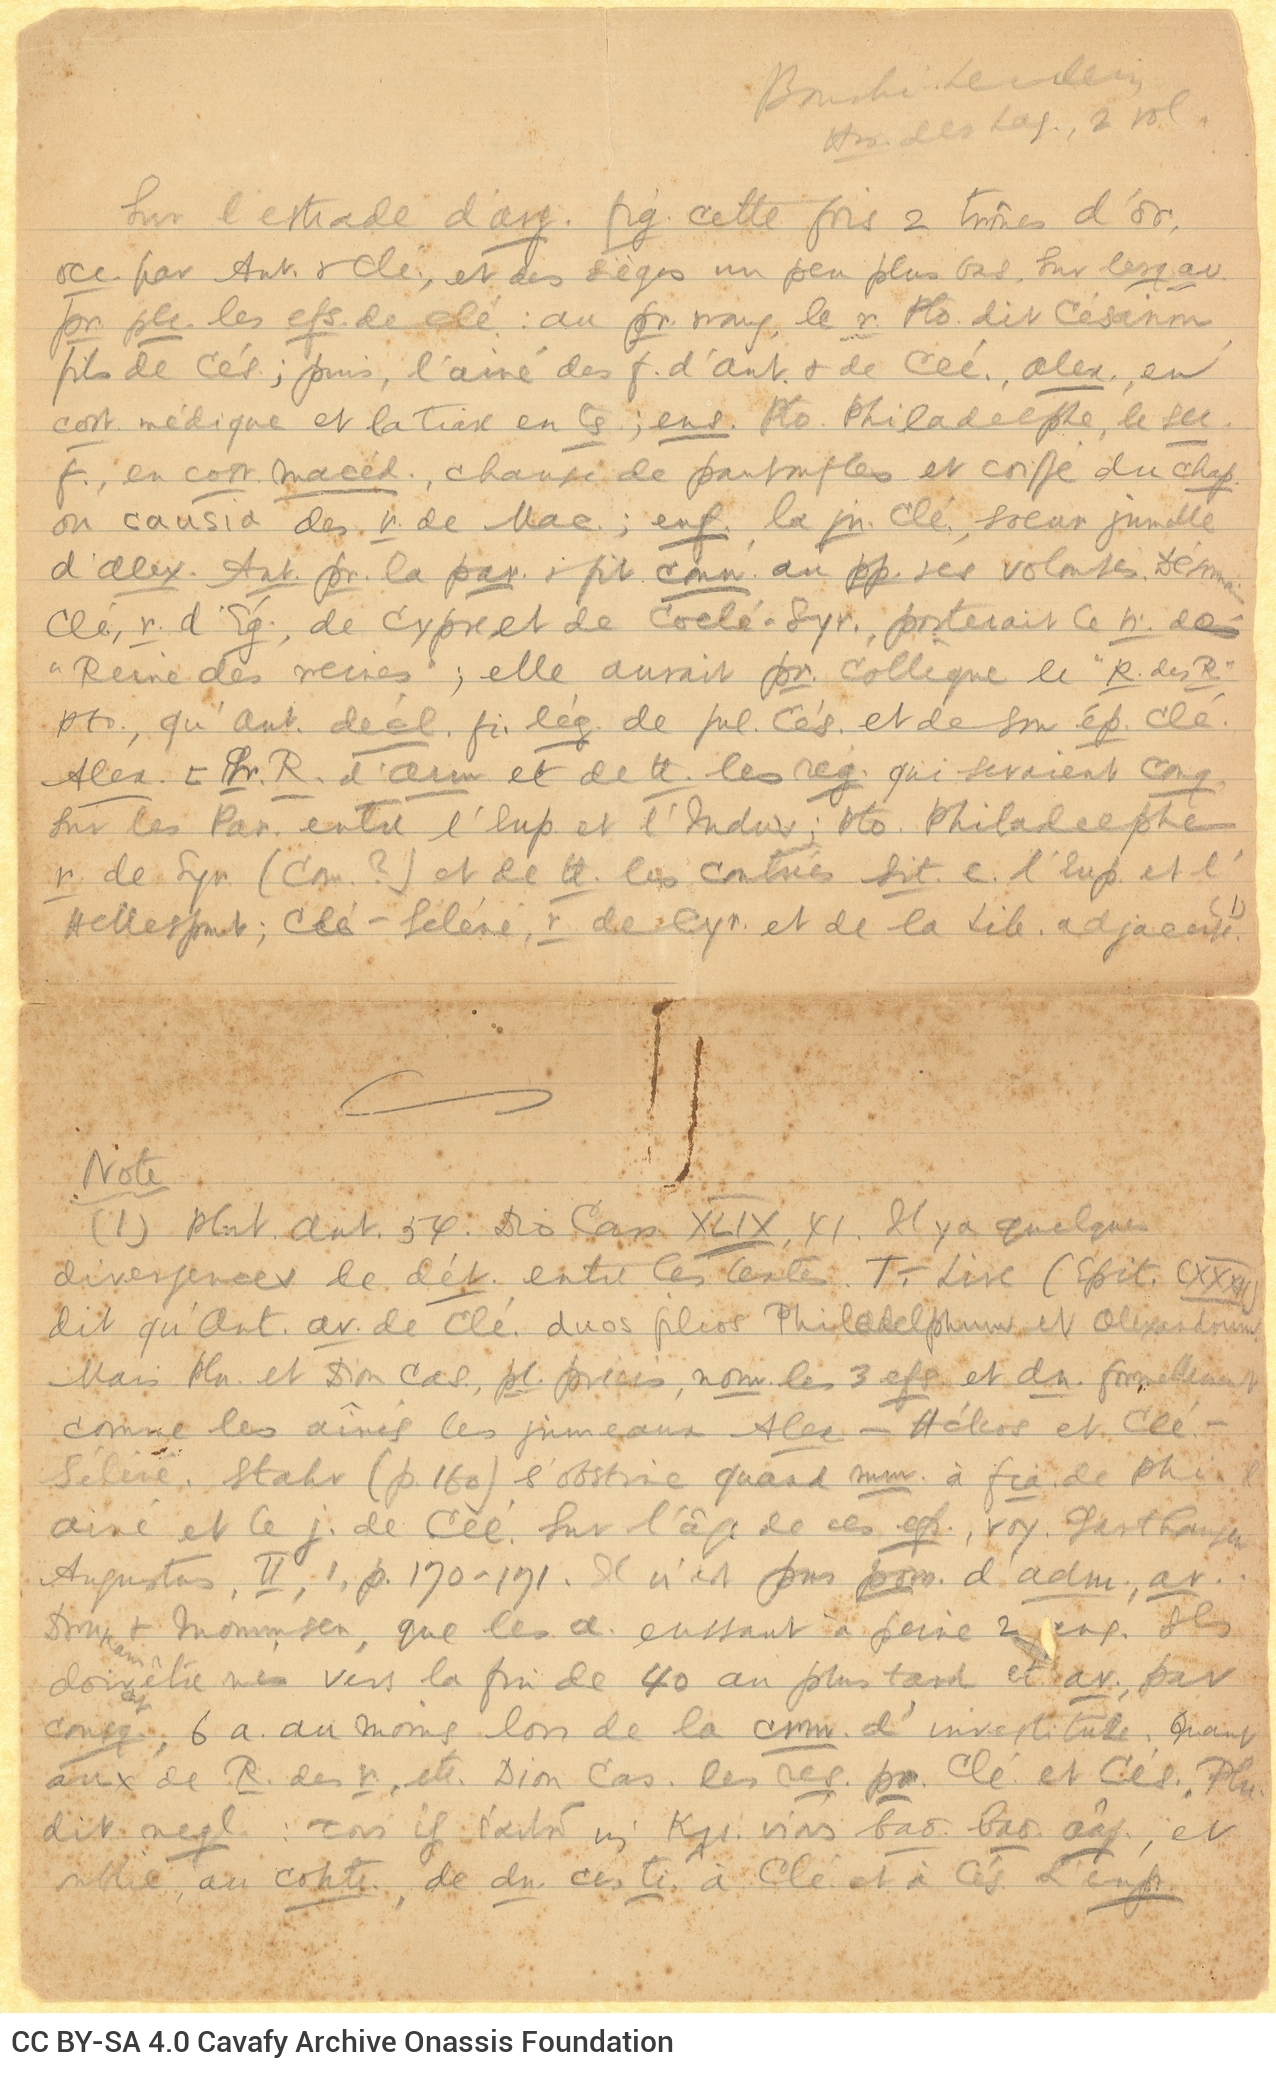 Hist. des Lag., 2 vol.
Sur l'estrade d'arg. fig. cette fois 2 trônes d'or,
occ. par Ant. & Clé., et des sièges un peu plus bas. Sur lesq. av.
pr. plc. les efs. de Clé. : au pr. rang, le r. Pto. dit Césarion
fils de Cés. ; puis, l'ainé des f. d'Ant. & de Clé., Alex., en
cost. médique et la tiare en ts ; ens. Pto. Philadelphe, le sec.
f., en cost. macéd., chaussé de pantoufles et coiffé du chap.
ou causia des r. de Mac. ; enf. la jn. Clé., soeur jumelle
d'Alex. Ant. pr. la par. & fit conn. au pp. ses volontés. Désormais
Clé, r. d'Ég., de Cypre et de Coelé-Syr., porterait le n. de
"Reine des reines" ; elle aurait pr. collègue le "R. des R."
Pto., qu'Ant. décl. fi. lég. de Jul. Cés. et de son ép. Clé.
Alex. Pr. R. d'Arm et de tt. les rég. qui seraient conq.
sur les Par. entre l'Eup et l'Indus ; Pto. Philadelphe
r. de Syr. (Com. ?) et de tt. les contrées sit. e. l'Eup. et l'
Hellespont ; Clé-Séléné, r. de Cyr. et de la Lib. adjacente. (1)
Note
(1) Plut. Ant. 54. Dio Cass XLIX, 41. Il y a quelques
divergences de dét. entre les textes. T.-Live (Epit. CXXXII)
dit qu'Ant. av. de Clé. duos filios Philadelphum et Alexandrum
Mais Plu. et Dion Cas., pl. précis, nom. les 3 efs et dn. formellement
comme les aînés les jumeaux Alex-Hélios et Clé.-
Séléné. Stahr (p. 160) s'obstine quand mm. à de Phi. l'
ainé et le j. de Clé. Sur l'âge de ces efs., voy. Gardthausen
Augustus, II, 1, p. 170-171. Il n'est pas pos. d'adm., av.
Drum & Mommsen, que les eussent à peine 2 ans. Ils
doivent être nés vers la fin de 40 au plus tard et av., par
conseq., 6 a. au moins lors de la cérém. d'investiture. Quant
aux de R. des r., etc. Dion Cas. les res. pr. Clé et Cés. Plu.
dit negl. :
oublie, au contr., de dn. ces ti. à Clé. et à Cés. L'empr.
CC BY-SA 4.0 Cavafy Archive Onassis Foundation